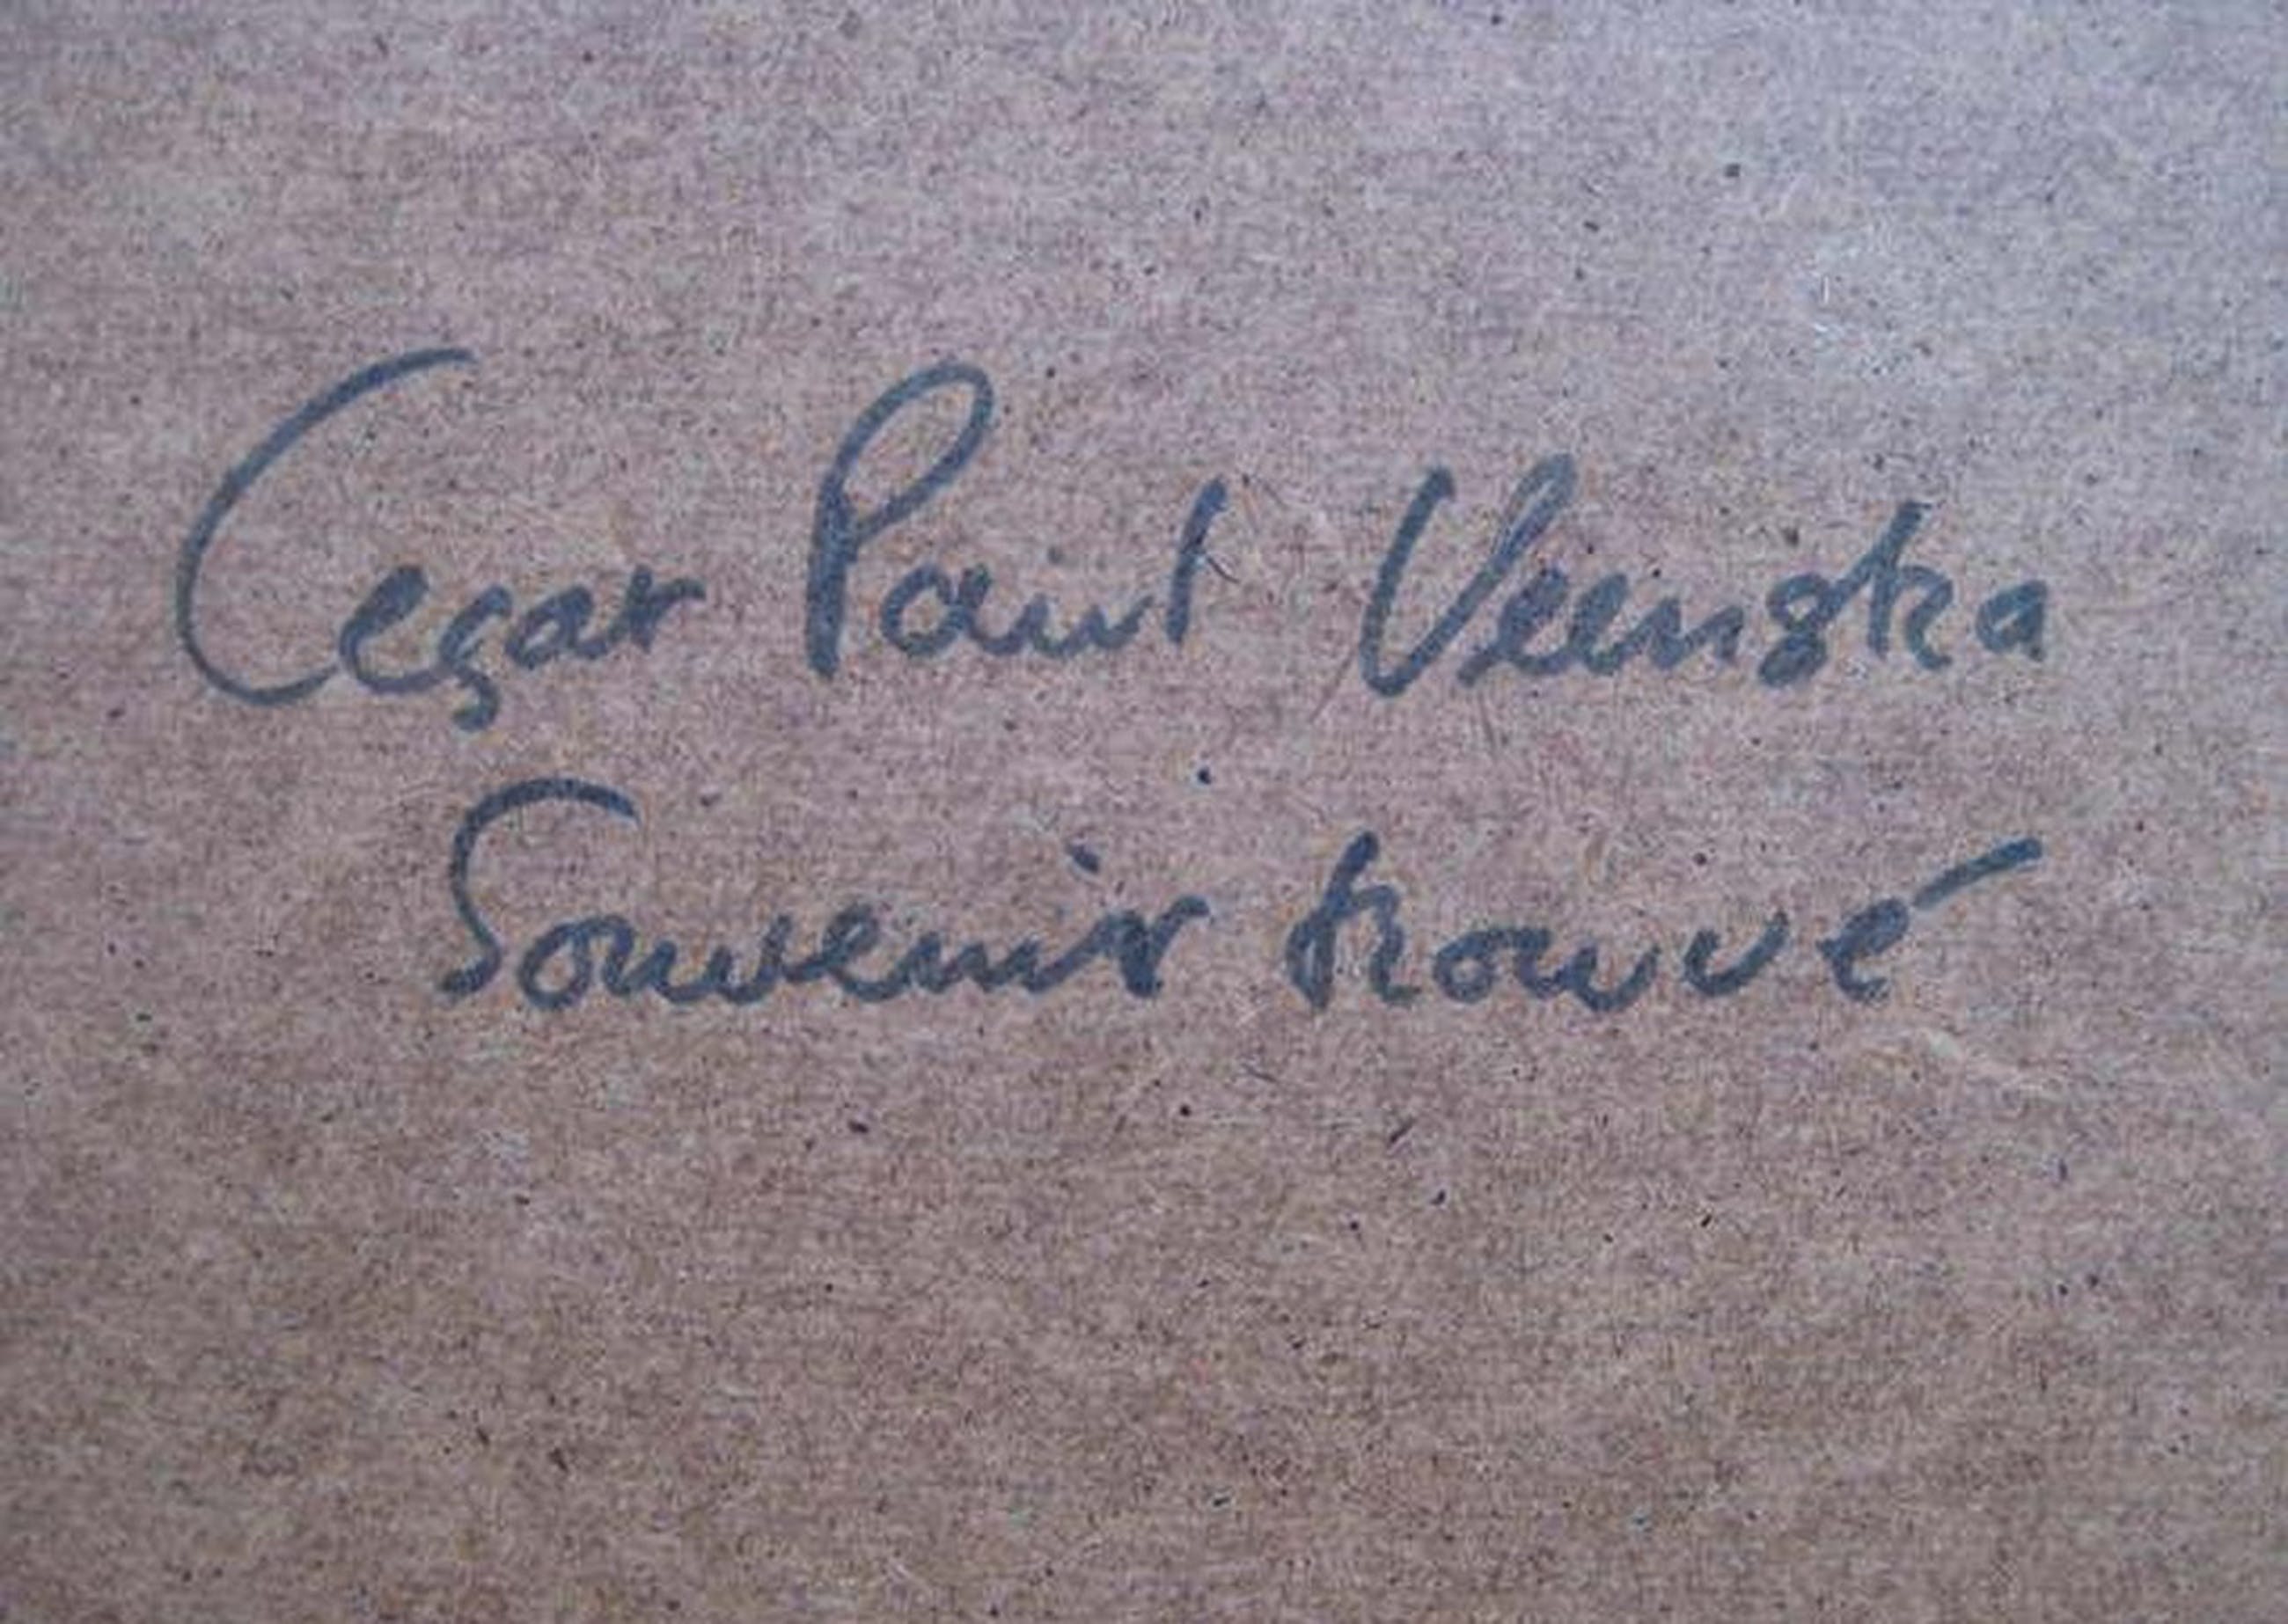 Cesar Paul Veenstra
Souvenir trouvé